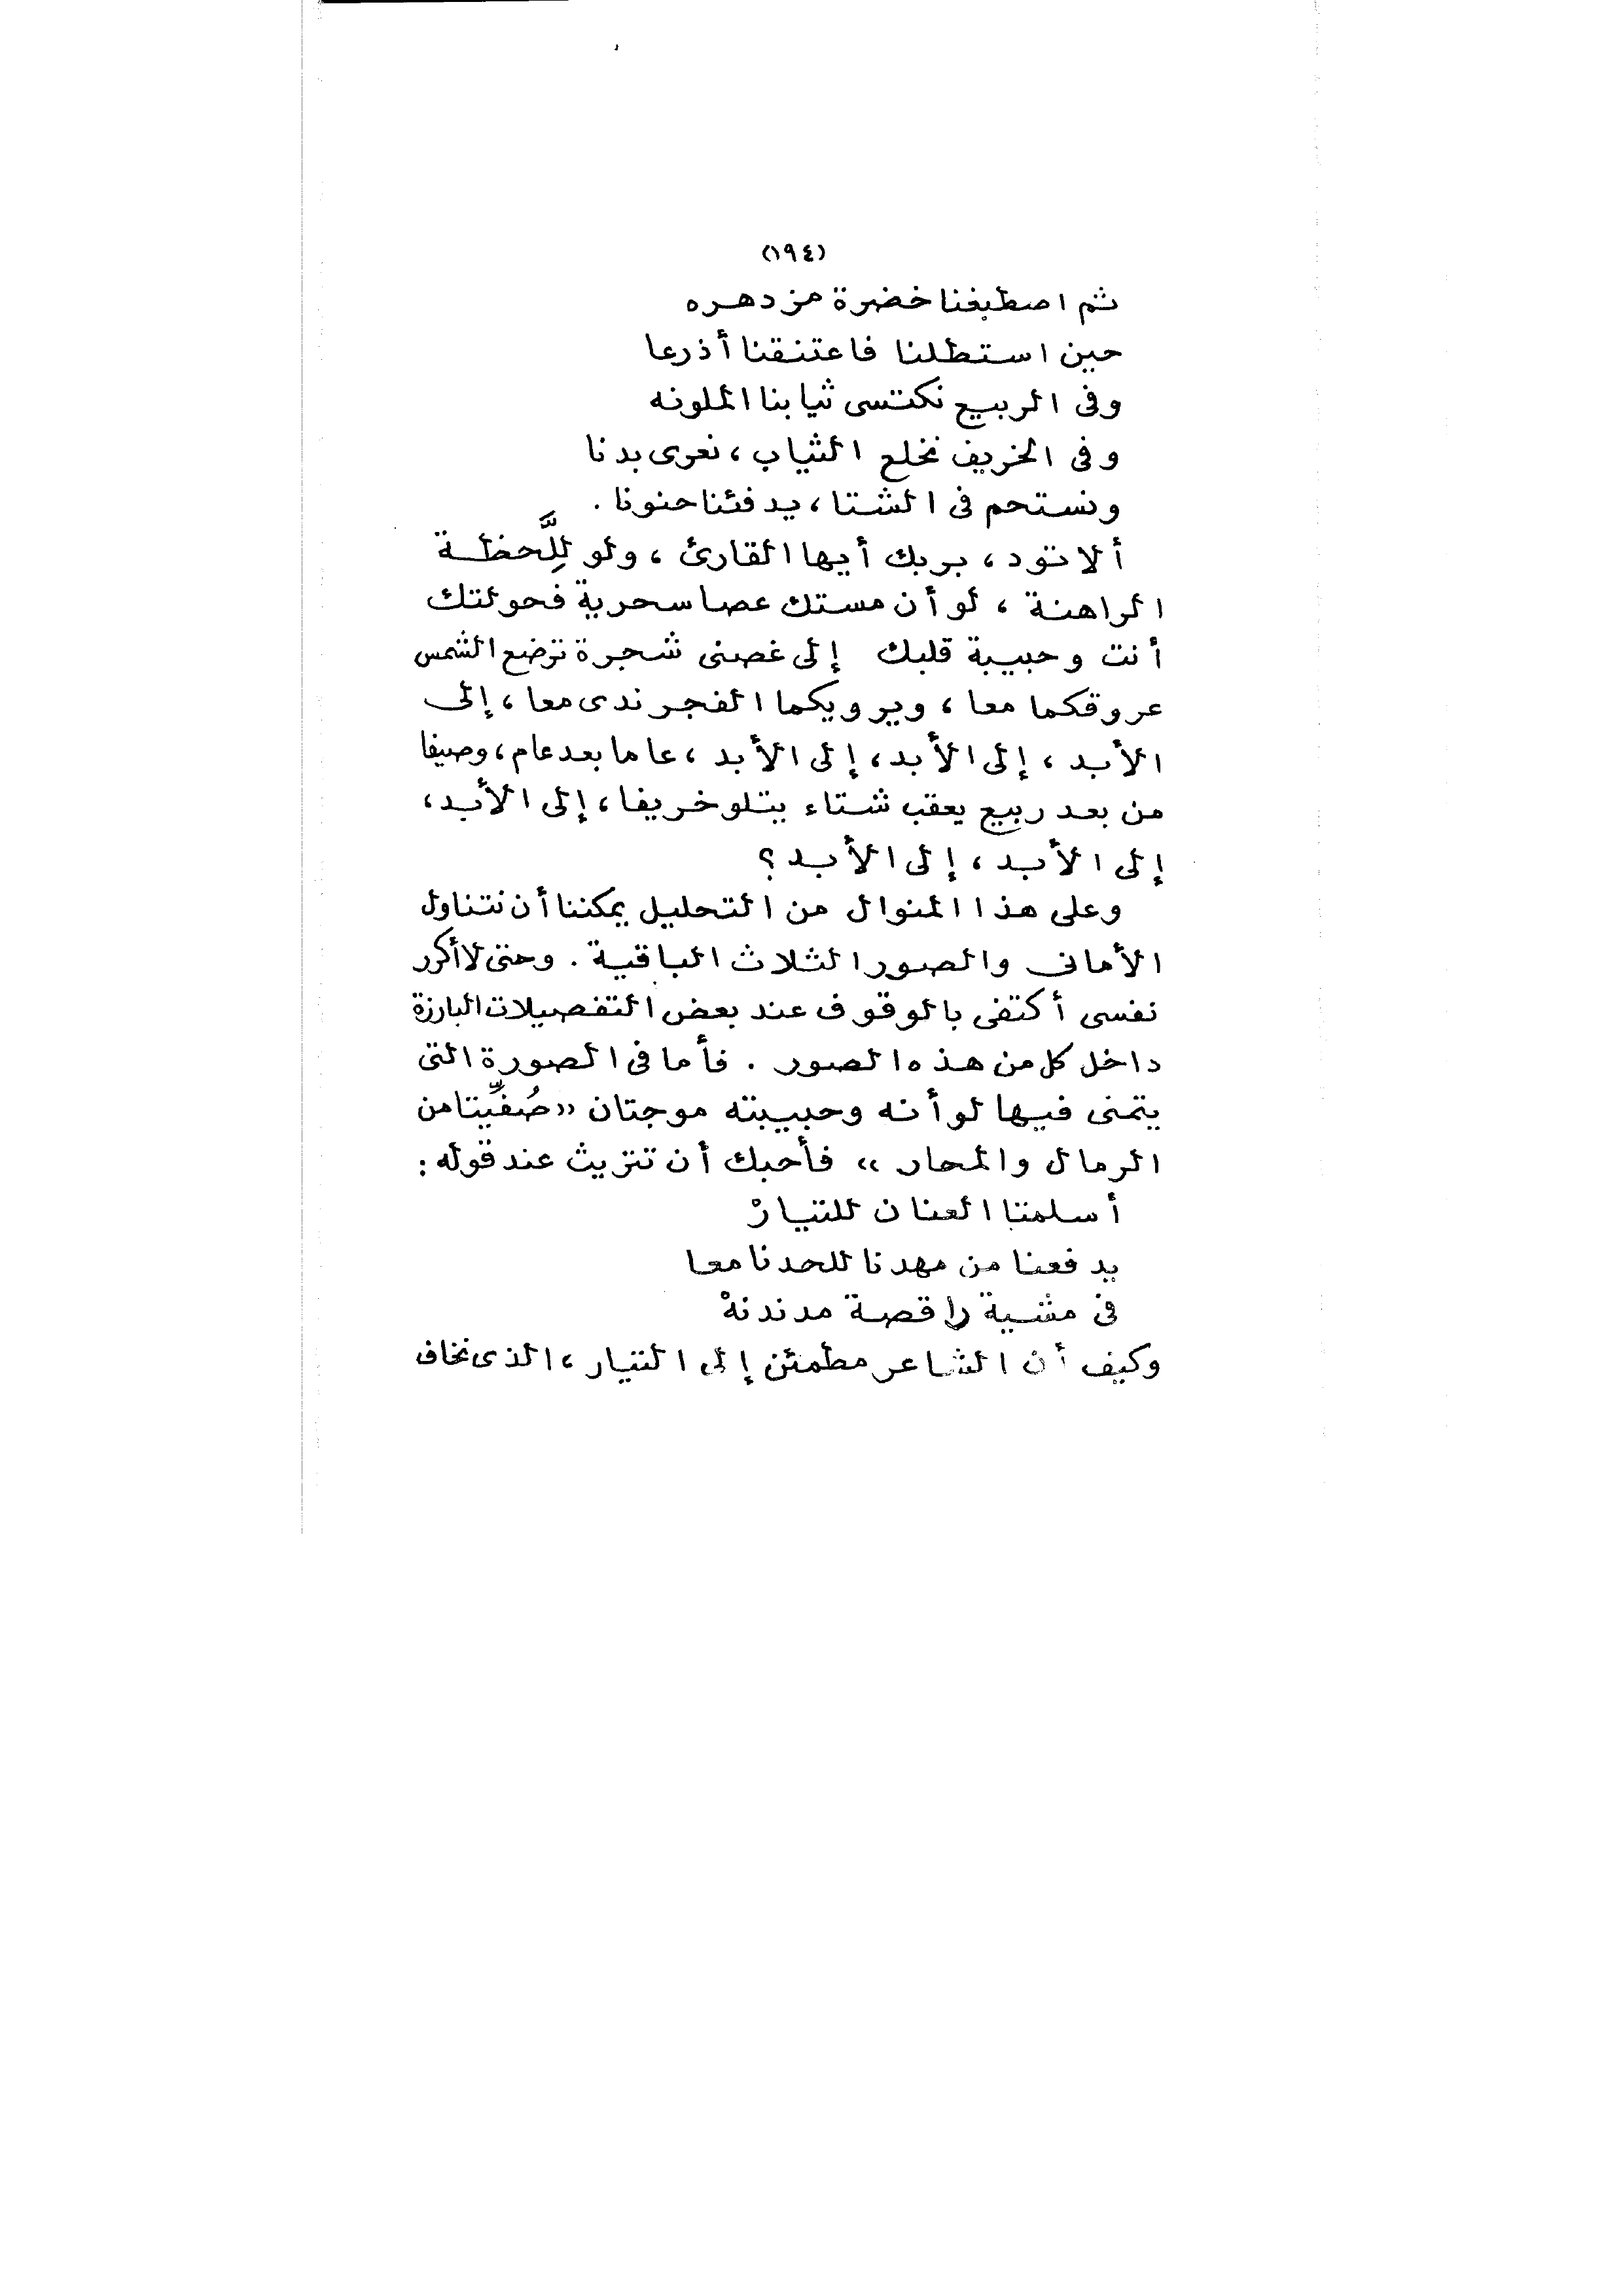 (١٩٤)
ثم اصطبغنا خضرة مزدهره
حين استطلنا فاعتنقنا أذرعا
وفى الربيع نكتسى ثيابنا الملونه
وفى الخريف نخلع الثياب ، نعرى بدنا
ونستحم فى الشتا ، يدفئنا حنونا .
ألا تود ، بربك أيها القارئ ، ولو لِلَّحظة
الراهنة ، لو أن مستك عصا سحرية فحولتك
أنت وحبيبة قلبك إلى غصنى شجرة ترضع الشمس
عروقكما معا ، ويرويكما الفجر ندى معا ، إلى
الأبد ، إلى الأبد ، إلى الأبد ، عاما بعد عام ، وصيفا
من بعد ربيع يعقب شتاء يتلو خريفا ، إلى الأبد ،
إلى الأبد ، إلى الأبد ؟
وعلى هذا المنوال من التحليل يمكننا أن نتناول
الأمانى والصور الثلاث الباقية . وحتى لا أكرر
نفسى أكتفى بالوقوف عند بعض التفصيلات البارزة
داخل كل من هذه الصور . فأما فى الصورة التى
يتمنى فيها لو أنه وحبيبته موجتان «صُفِّيتا من
الرمال والمحار » فأحبك أن تتريث عند قوله :
أسلمتا العنان للتيارْ
يدفعنا من مهدنا للحدنا معا
فى مشية راقصة مدندنهْ
وكيف أن الشاعر مطمئن إلى التيار ، الذى نخاف